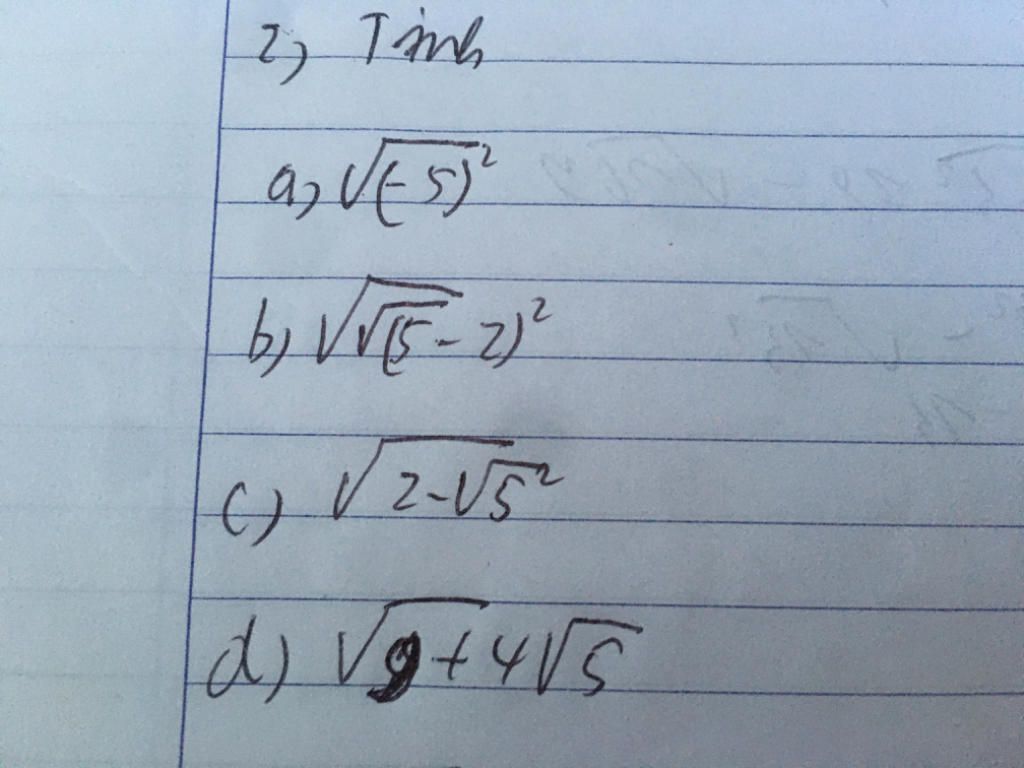 2) Tính
a) √(-5)²
b) √(√5-2)²
c) √2-√5²
d) √9+4√5